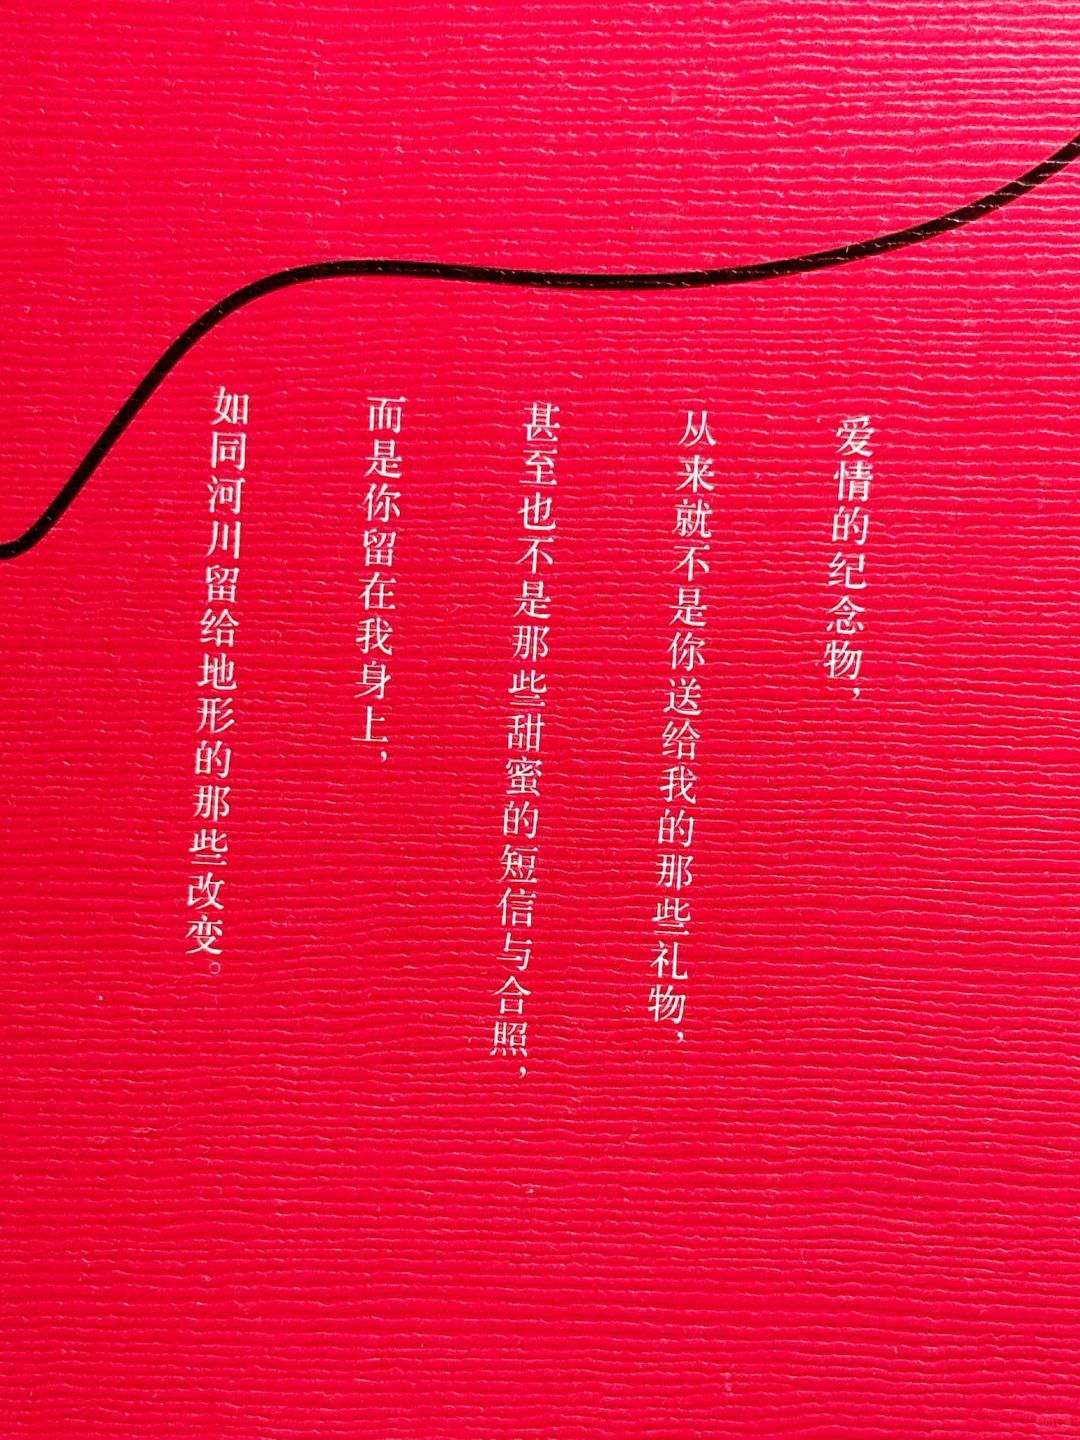 爱情的纪念物，
从来就不是你送给我的那些礼物，
甚至也不是那些甜蜜的短信与合照，
而是你留在我身上，
如同河川留给地形的那些改变。